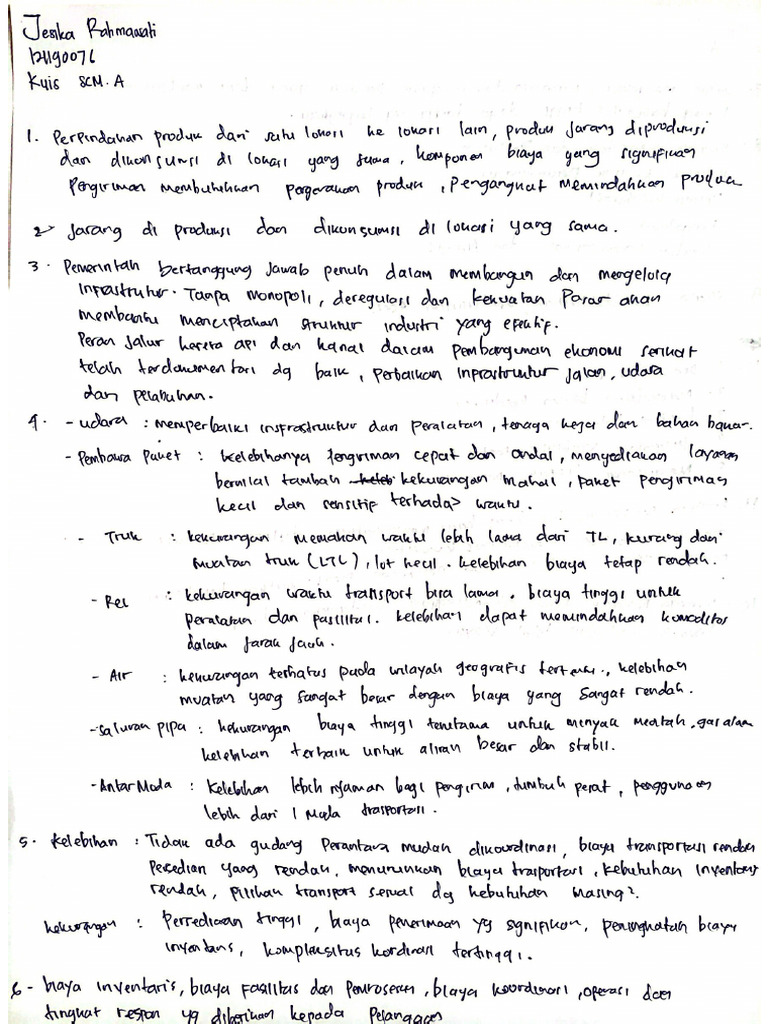 Jesika Rahmawati
12190076
Kuis SCM. A
1. Perpindahan produk dari satu lokasi ke lokasi lain, produk jarang diproduksi
dan dikonsumsi di lokasi yang sama, komponen biaya yang signifikan
Pengiriman membutuhkan pergerakan produk, Pengangkut memindahkan produk
2. Jarang di produksi dan dikonsumsi di lokasi yang sama.
3. Pemerintah bertanggung jawab penuh dalam membangun dan mengelola
Infrastrutur. Tanpa monopoli, deregulasi dan kekuatan Pasar akan
membantu menciptakan struktur industri yang efektif.
Peran Jalur kereta api dan kanal dalam pembangunan ekonomi serikat
telah terdokumentasi dg baik, perbaikan inprastruktur jalan, udara
dan pelabuhan.
4. - udara : memperbaiki insfrastruktur dan peralatan, tenaga kerja dan bahan bakar.
- Pembawa Paket : kelebihanya pengiriman cepat dan andal, menyediakan layanan
bernilai tambah kekurangan mahal, paket pengiriman
kecil dan sensitif terhadap waktu.
- Truk : kekurangan memakan waktu lebih lama dari TL, kurang dari
muatan truk (LTL), lot kecil. kelebihan biaya tetap rendah.
- Rel : kekurangan waktu transport bisa lama. biaya tinggi untuk
peralatan dan pasilitas. kelebihan dapat memindahkan komoditas
dalam jarak jauh.
- Air : kekurangan terbatas pada wilayah geografis tertentu, kelebihan
muatan yang sangat besar dengan biaya yang sangat rendah.
- Saluran pipa : kekurangan biaya tinggi terutama untuk minyak mentah, gas alam
kelebihan terbaik untuk aliran besar dan stabil.
- Antar Moda : Kelebihan lebih nyaman bagi pengirim, tumbuh pesat, penggunaan
lebih dari 1 Moda trasportasi.
5. Kelebihan : Tidak ada gudang Perantara mudah dikoordinasi, biaya transportasi rendah
Persedian yang rendah, menurunkan biaya trasportasi, kebutuhan inventaris
rendah, pilihan transport sesuai dg kebutuhan masing².
kekurangan : Persediaan tinggi, biaya penerimaan yg signifikan, peningkatan biaya
inventaris, kompleksitas kordinasi tertinggi.
6 - biaya inventaris, biaya fasilitas dan pemrosesan, biaya koordinasi, operasi dan
tingkat respon yg diberikan kepada Pelanggan